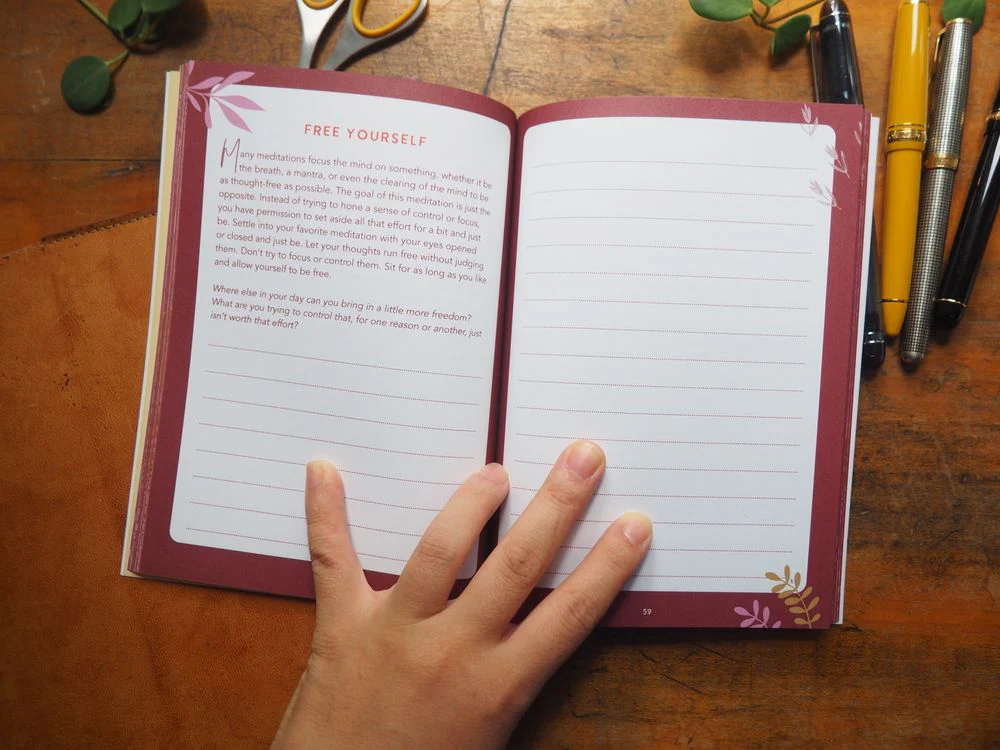 FREE YOURSELF
Many meditations focus the mind on something, whether it be
the breath, a mantra, or even the clearing of the mind to be
as thought-free as possible. The goal of this meditation is just the
opposite. Instead of trying to hone a sense of control or focus,
you have permission to set aside all that effort for a bit and just
be. Settle into your favorite meditation with your eyes opened
or closed and just be. Let your thoughts run free without judging
them. Don't try to focus or control them. Sit for as long as you like
and allow yourself to be free.
Where else in your day can you bring in a little more freedom?
What are you trying to control that, for one reason or another, just
isn't worth that effort?
59